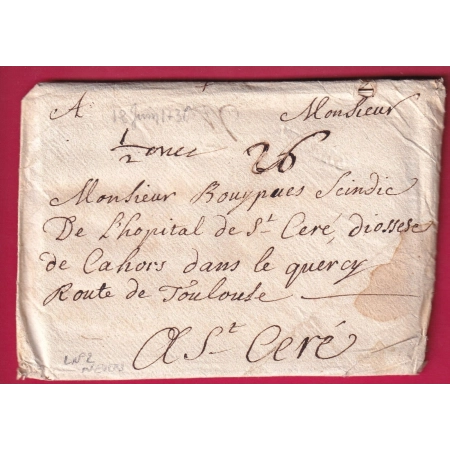 A Monsieur
18 Juin 1736
1/2 once 26
Monsieur Bouyques Scindic
De L'hopital de St Ceré diossese
de Cahors dans le quercy
Route de Toulouse
A St Ceré